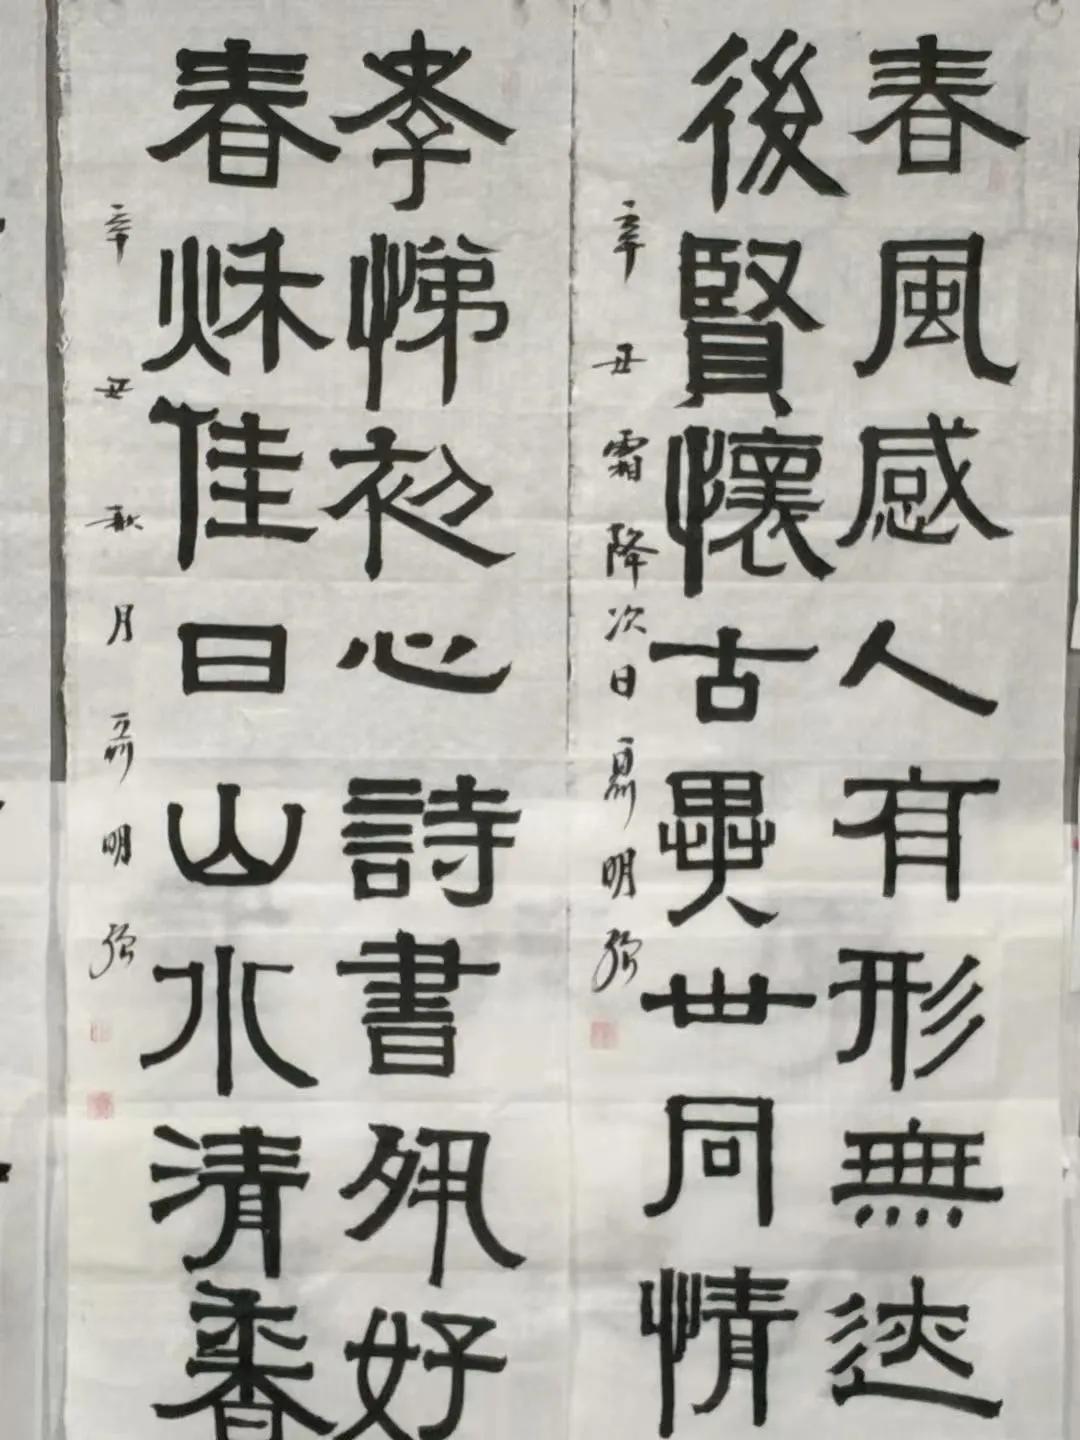 春風感人有形無迹
後賢懷古異世同情
辛丑霜降次日聶明強
孝悌初心詩書夙好
春秋佳日山水清香
辛丑秋月聶明強